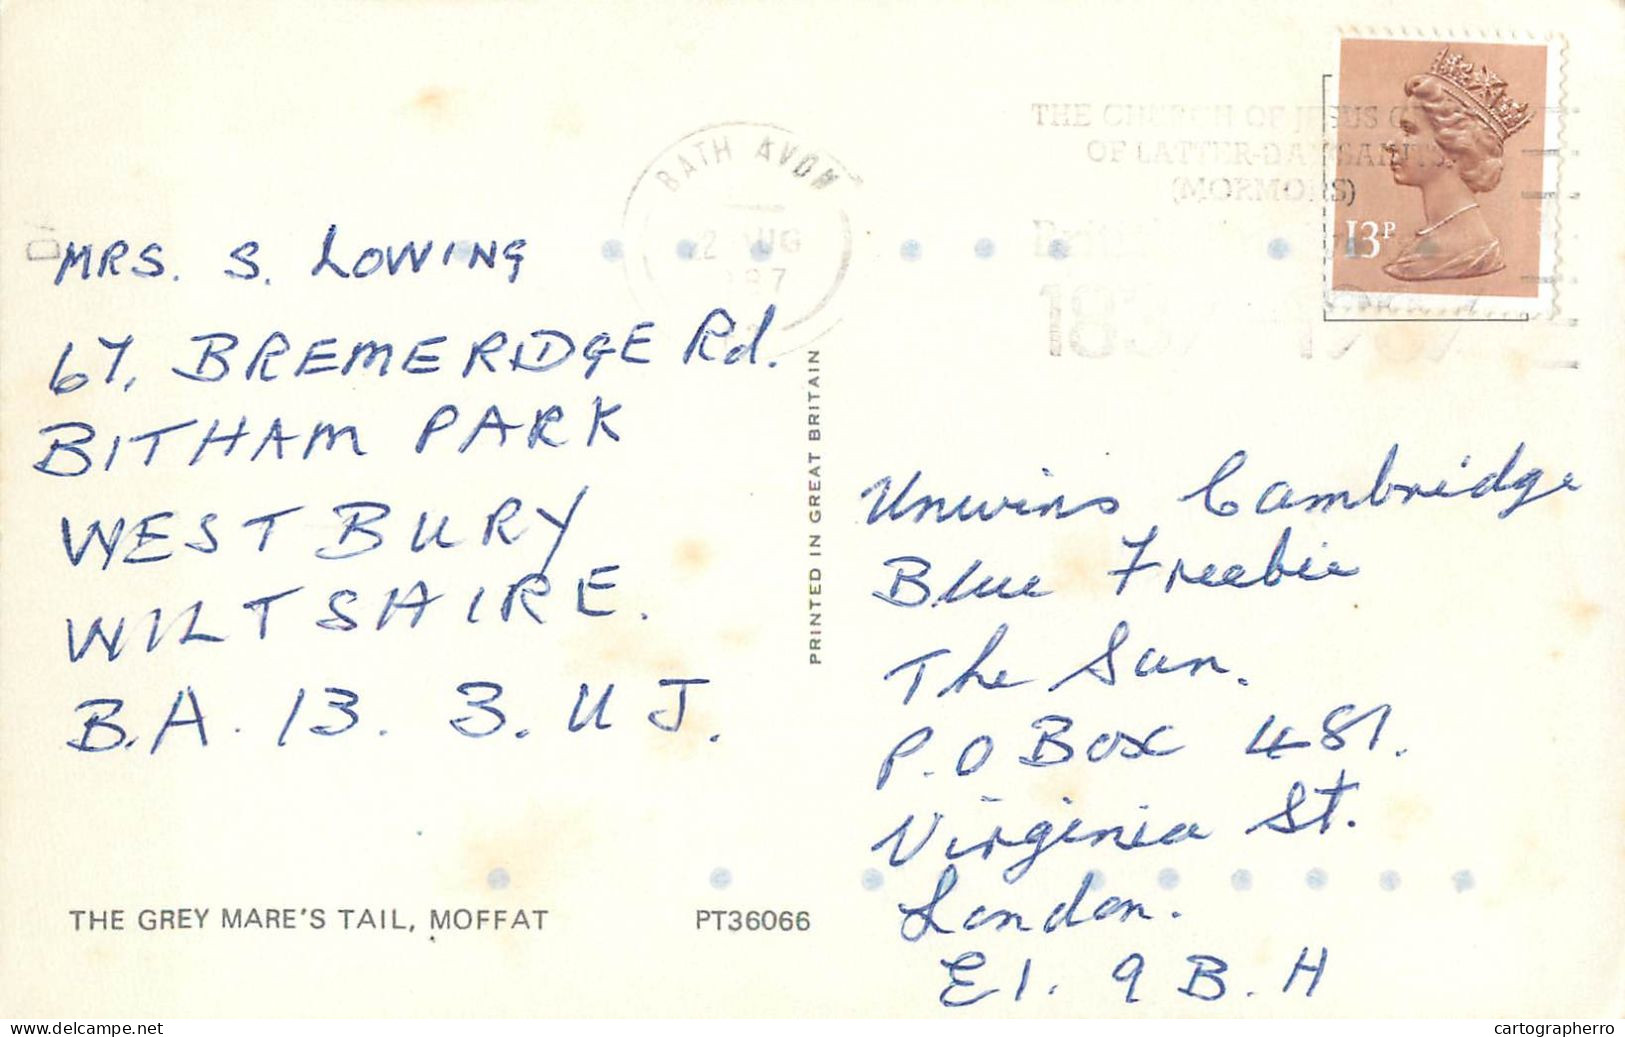 MRS. S. LOWING
67, BREMERIDGE Rd.
BITHAM PARK
WESTBURY
WILTSHIRE.
B.A. 13. 3. U J.
THE GREY MARE'S TAIL, MOFFAT
PT36066
PRINTED IN GREAT BRITAIN
BATH AVON
AUG
THE CHURCH OF JESUS
OF LATTER-DAY SAINTS
(MORMONS)
13P
Unwins Cambridge
Blue Freebie
The Sun.
P.O Box 481.
Virginia St.
London.
E1. 9 B. H
cartographerro
delcampe.net